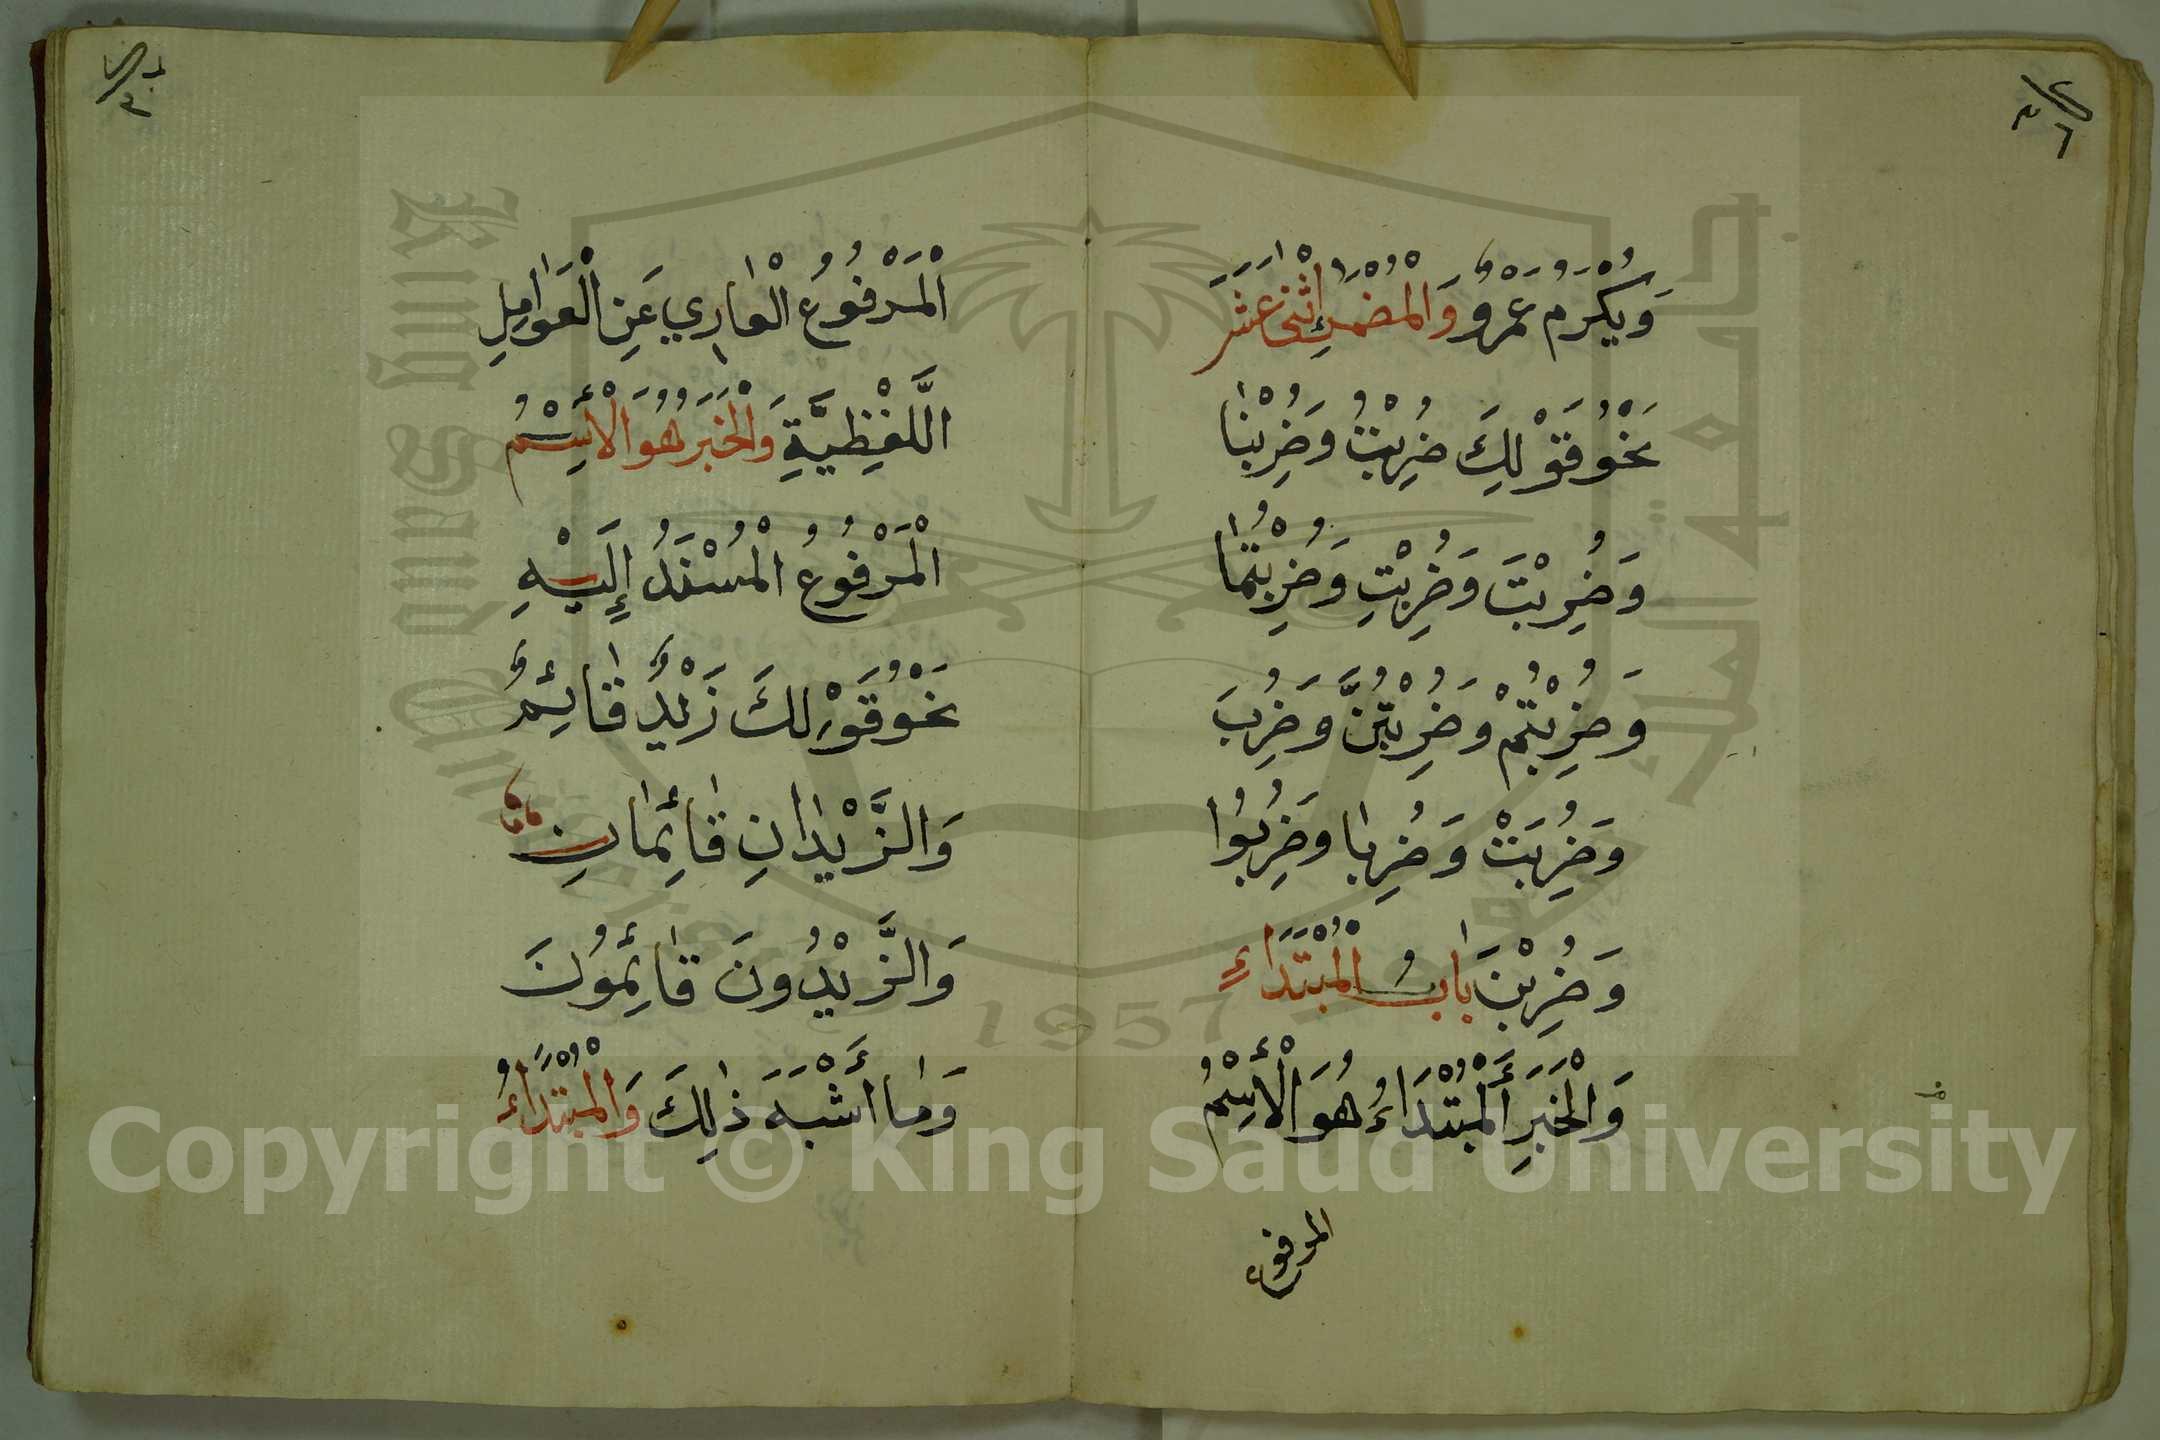 وَيُكْرَمُ عَمْرٌو وَالْمُضْمَرُ إِثْنٰى عَشَرَ
نَحْوُ قَوْلِكَ ضُرِبْتُ وَضُرِبْنٰا
وَضُرِبْتَ وَضُرِبْتِ وَضُرِبْتُمٰا
وَضُرِبْتُمْ وَضُرِبْتُنَّ وَضُرِبَ
وَضُرِبَتْ وَضُرِبٰا وَضُرِبُوا
وَضُرِبْنَ بٰابُ الْمُبْتَدَاءِ
وَالْخَبَرِ أَلْمُبْتَدَاءُ هُوَ الْأَسِْمُ
المرفوع
الْمَرْفُوعُ الْعٰارِي عَنِ الْعَوٰامِلِ
اللَّفْظِيَّةِ وَالْخَبَرُ هُوَ الْأَسِْمُ
الْمَرْفُوعُ الْمُسْنَدُ إِلَيْهِ
نَحْوُ قَوْلِكَ زَيْدٌ قٰائِمٌ
وَالزَّيْدٰانِ قٰائِمٰانِ
وَالزَّيْدُونَ قٰائِمُونَ
وَمٰا أَشْبَهَ ذٰلِكَ وَالْمُبْتَدَاءُ
King Saud University
1957
Copyright © King Saud University